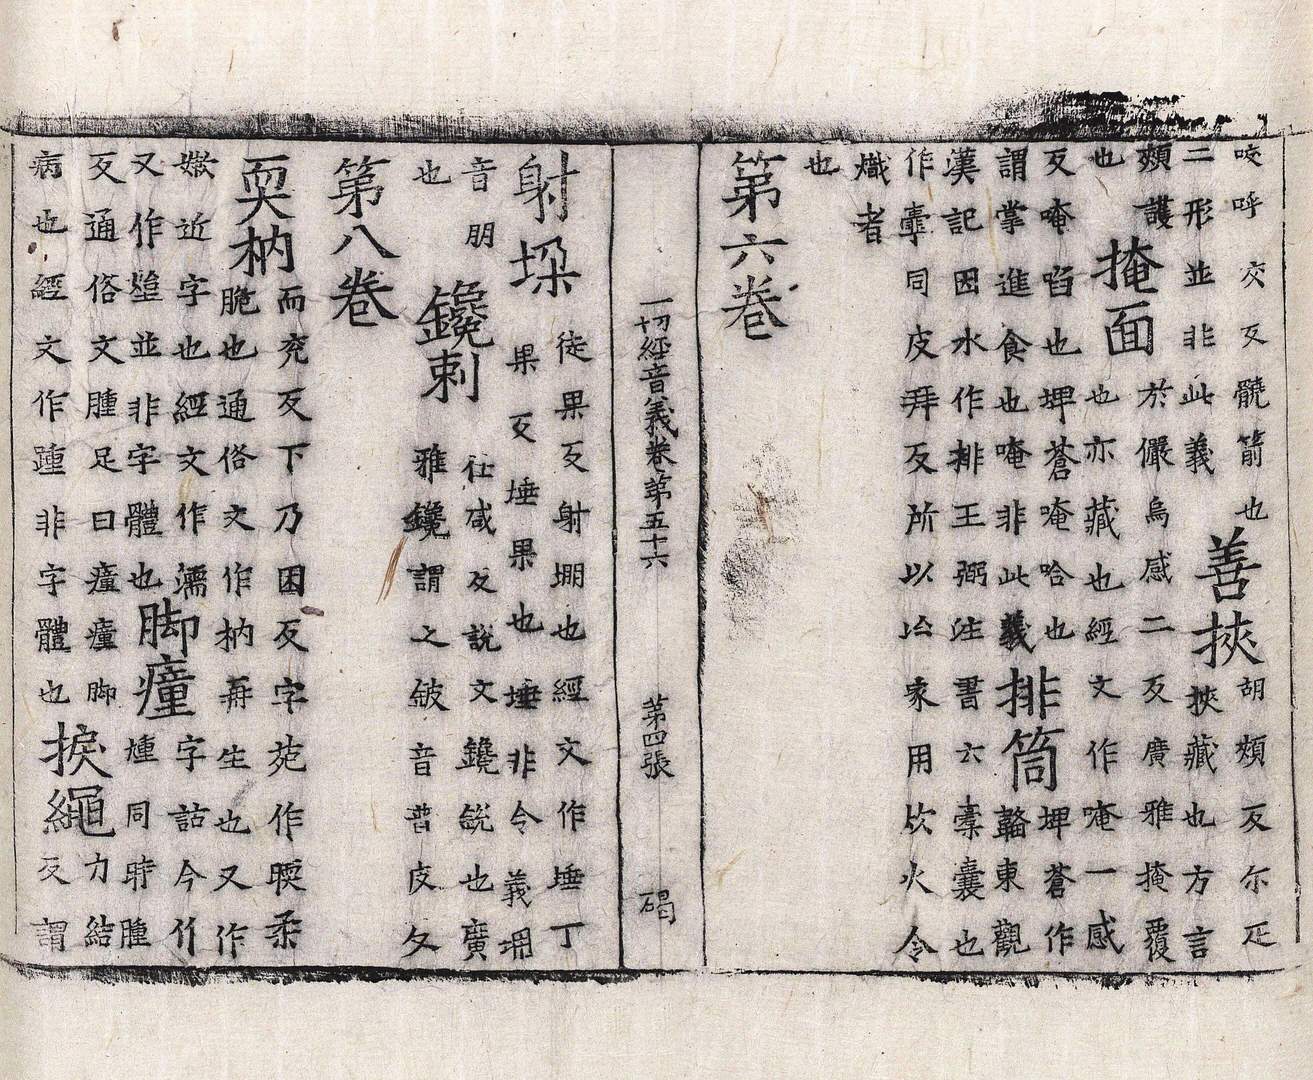 咬呼交反髐箭也
二形並非此義
善挾
胡頰反尔疋
挾藏也方言
頰護
也
掩面
於儼烏感二反廣雅掩覆
也亦藏也經文作唵一感
反唵啗也埤蒼唵唅也
謂掌進食也唵非此義
排筒
埤蒼作
韛東觀
漢記因水作排王弼注書云橐囊也
作橐同皮拜反所以冶家用炊火令
熾者
也
第六卷
一切經音義卷第五十六 第四張 碣
射垜
徒果反射堋也經文作埵丁
果反埵果也埵非今義堋
音朋
也
鑱刺
仕咸反說文鑱銳也廣
雅鑱謂之鈹音普皮反
第八卷
耎枘
而兖反下乃困反字苑作㬉柔
脆也通俗文作枘再生也又作
嫩近字也經文作濡
又作並非字體也
脚瘇
字詁今作
尰同時腫
反通俗文腫足曰瘇瘇脚
病也經文作踵非字體也
捩繩
力結
反謂